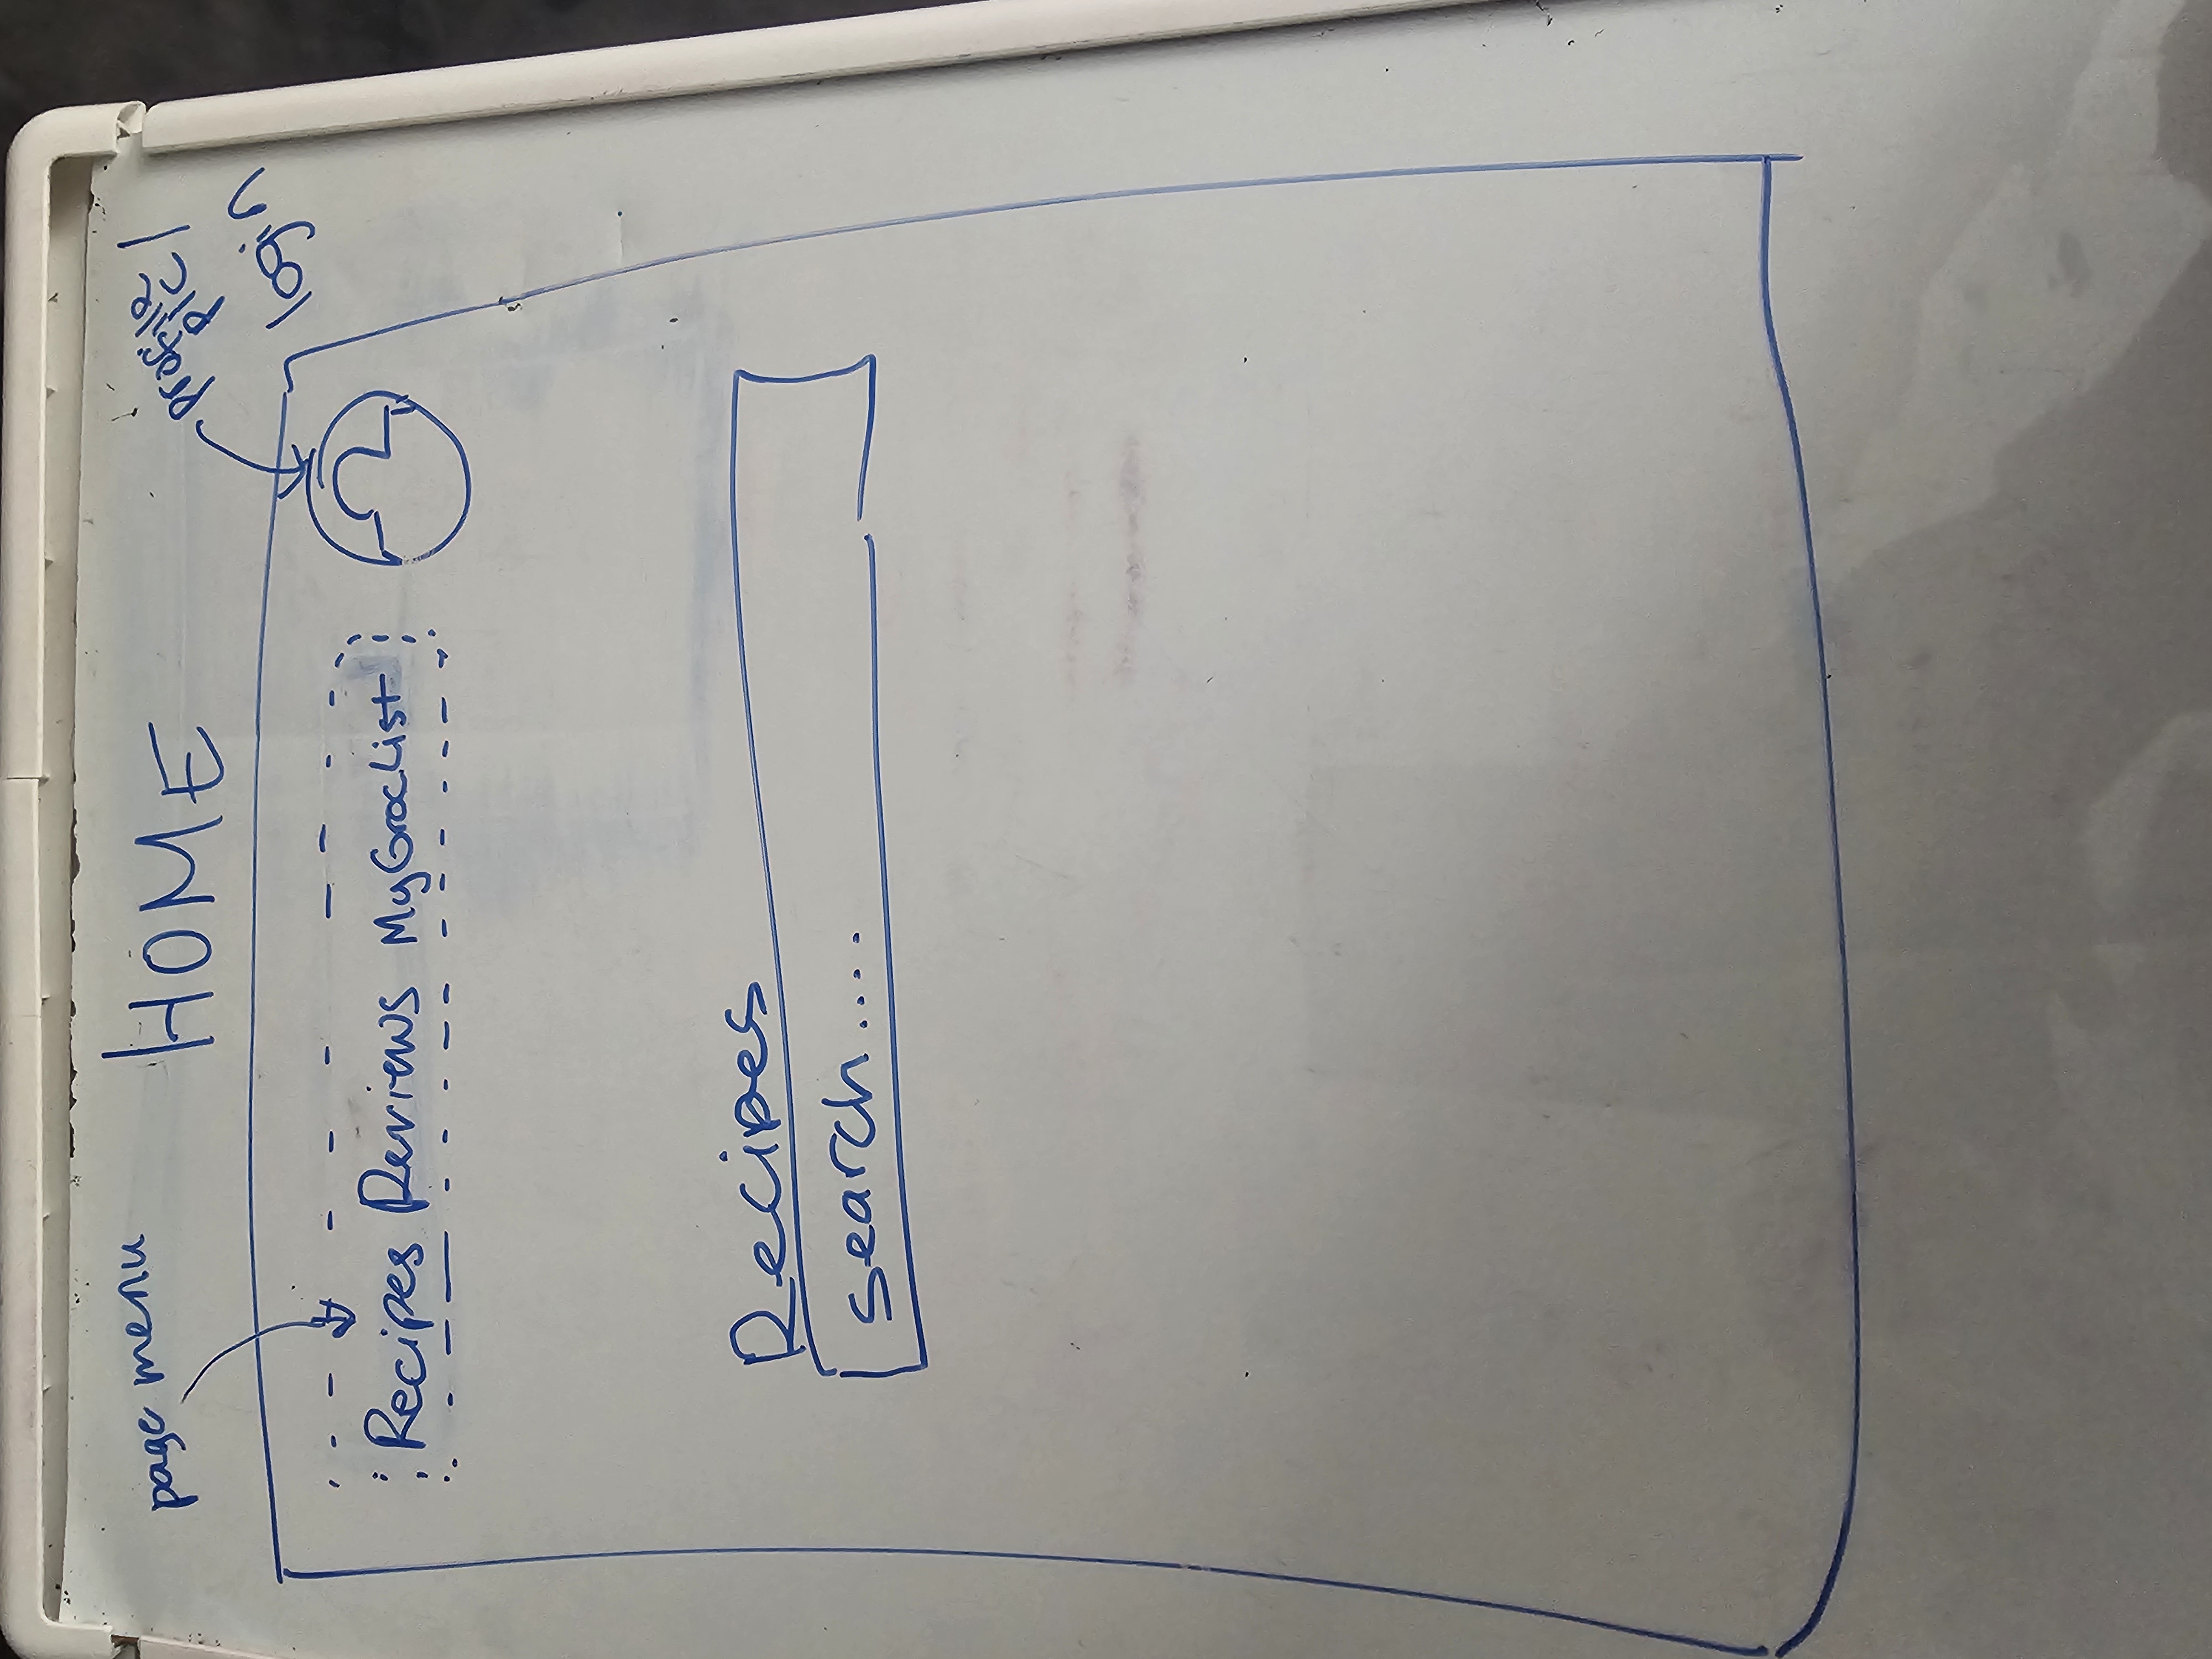 page menu
HOME
profile
pic /
login
Recipes Reviews MyGrocList
Recipes
search....